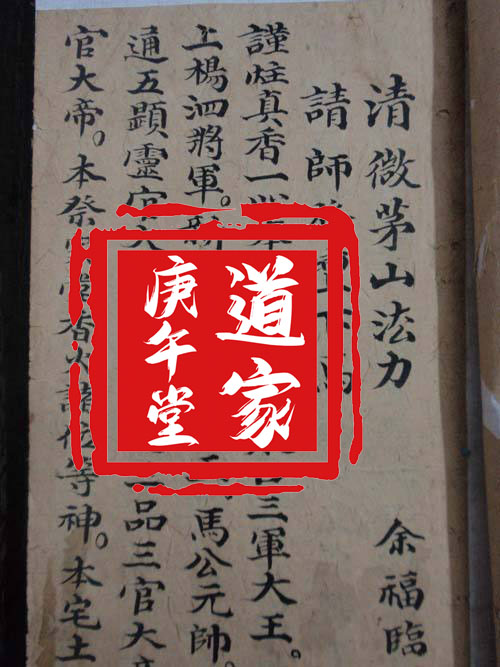 清微茅山法力 余福臨
請師
謹炷真香一 三軍大王。
上楊泗將軍。 馬公元帥。
通五顯靈官大 品三官大
官大帝。本祭 香火 諸位等神。本宅土
道家
庚午堂